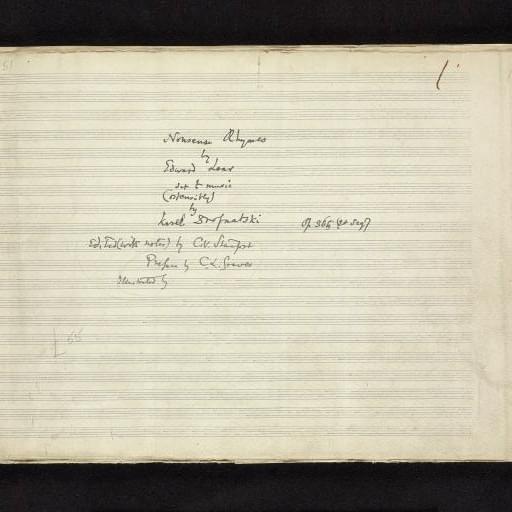 Nonsense Rhymes
by
Edward Lear
set to music
(ostensibly)
by
Karel Drofnatski Op. 365 (et seq)
Edited (with notes) by C.V. Stanford
Preface by C.L. Graves
Illustrated by
55